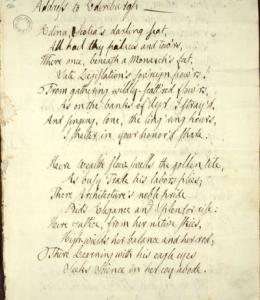 Address to Edinburgh
Edina, Scotia's darling seat,
All hail thy palaces and tow'rs,
Where once, beneath a Monarch's feet,
Sate Legislation's sov'reign pow'rs!
From marking wildly-scatt'red flow'rs,
As on the banks of Ayr I stray'd,
And singing, lone, the ling'ring hours,
I shelter in your honor'd shade.
Here Wealth still swells the golden tide,
As busy Trade his labors plies;
There Architecture's noble pride
Bids Elegance and Splendor rise:
Here Justice, from her native skies,
High wields her balance and her rod;
There Learning with his eagle eyes
Seeks Science in her coy abode.